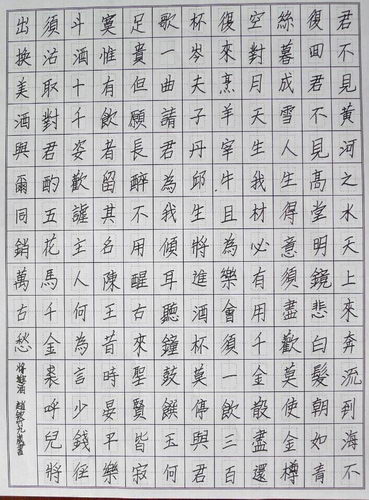 君不見黃河之水天上來奔流到海不
復回君不見高堂明鏡悲白髮朝如青
絲暮成雪人生得意須盡歡莫使金樽
空對月天生我材必有用千金散盡還
復來烹羊宰牛且為樂會須一飲三百
杯岑夫子丹邱生將進酒杯莫停與君
歌一曲請君為我傾耳聽鐘鼓饌玉何
足貴但願長醉不用醒古來聖賢皆寂
寞惟有飲者留其名陳王昔時晏平樂
斗酒十千姿歡謔主人何為言少錢徑
須沽取對君酌五花馬千金裘呼兒將
出換美酒與爾同銷萬古愁
將進酒